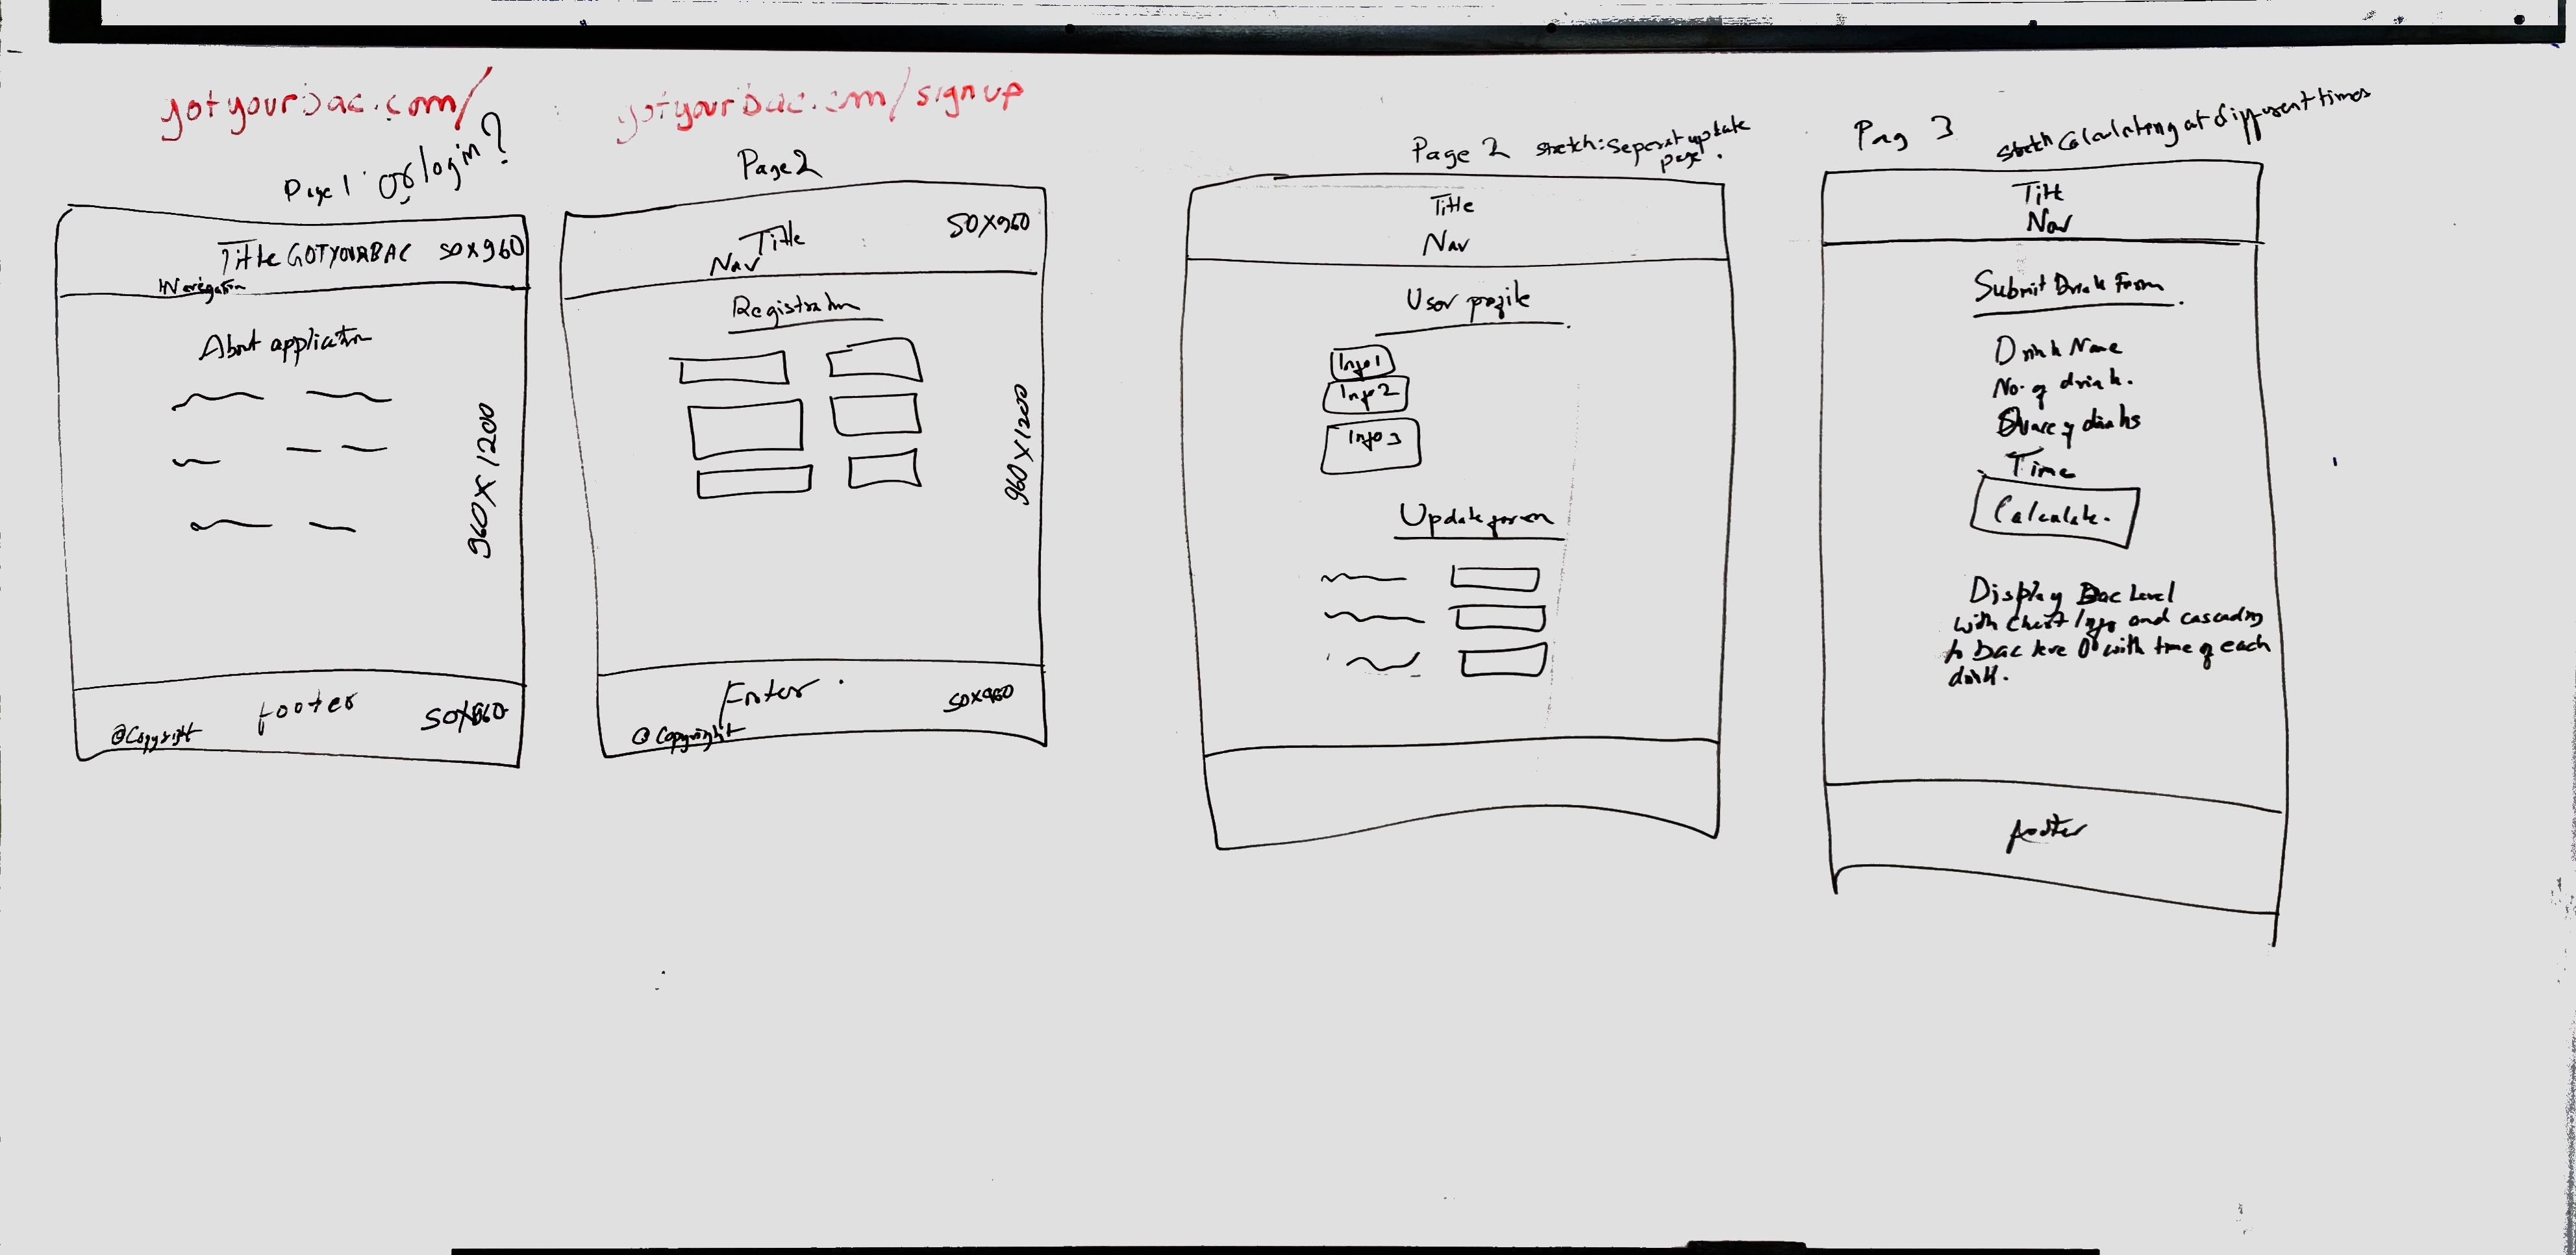 gotyourbac.com/
Page 1 or login?
Title GOTYOURBAC 50X960
Navigation
About application
960X1200
footer
50X960
@Copyright
gotyourbac.com/signup
Page 2
Title
50X960
Nav
Registration
960X1200
Footer
50X960
@ Copyright
Page 2 stretch: Seperat update
page.
Title
Nav
User profile
Info 1
Info 2
Info 3
Update form
Pag 3
stretch Calculating at different times
Title
Nav
Submit Drink Form
Drink Name
No. of drink.
of drinks
Time
Calculate.
Display Bac Level
with and cascading
to bac leve 0 with time of each
drink.
footer